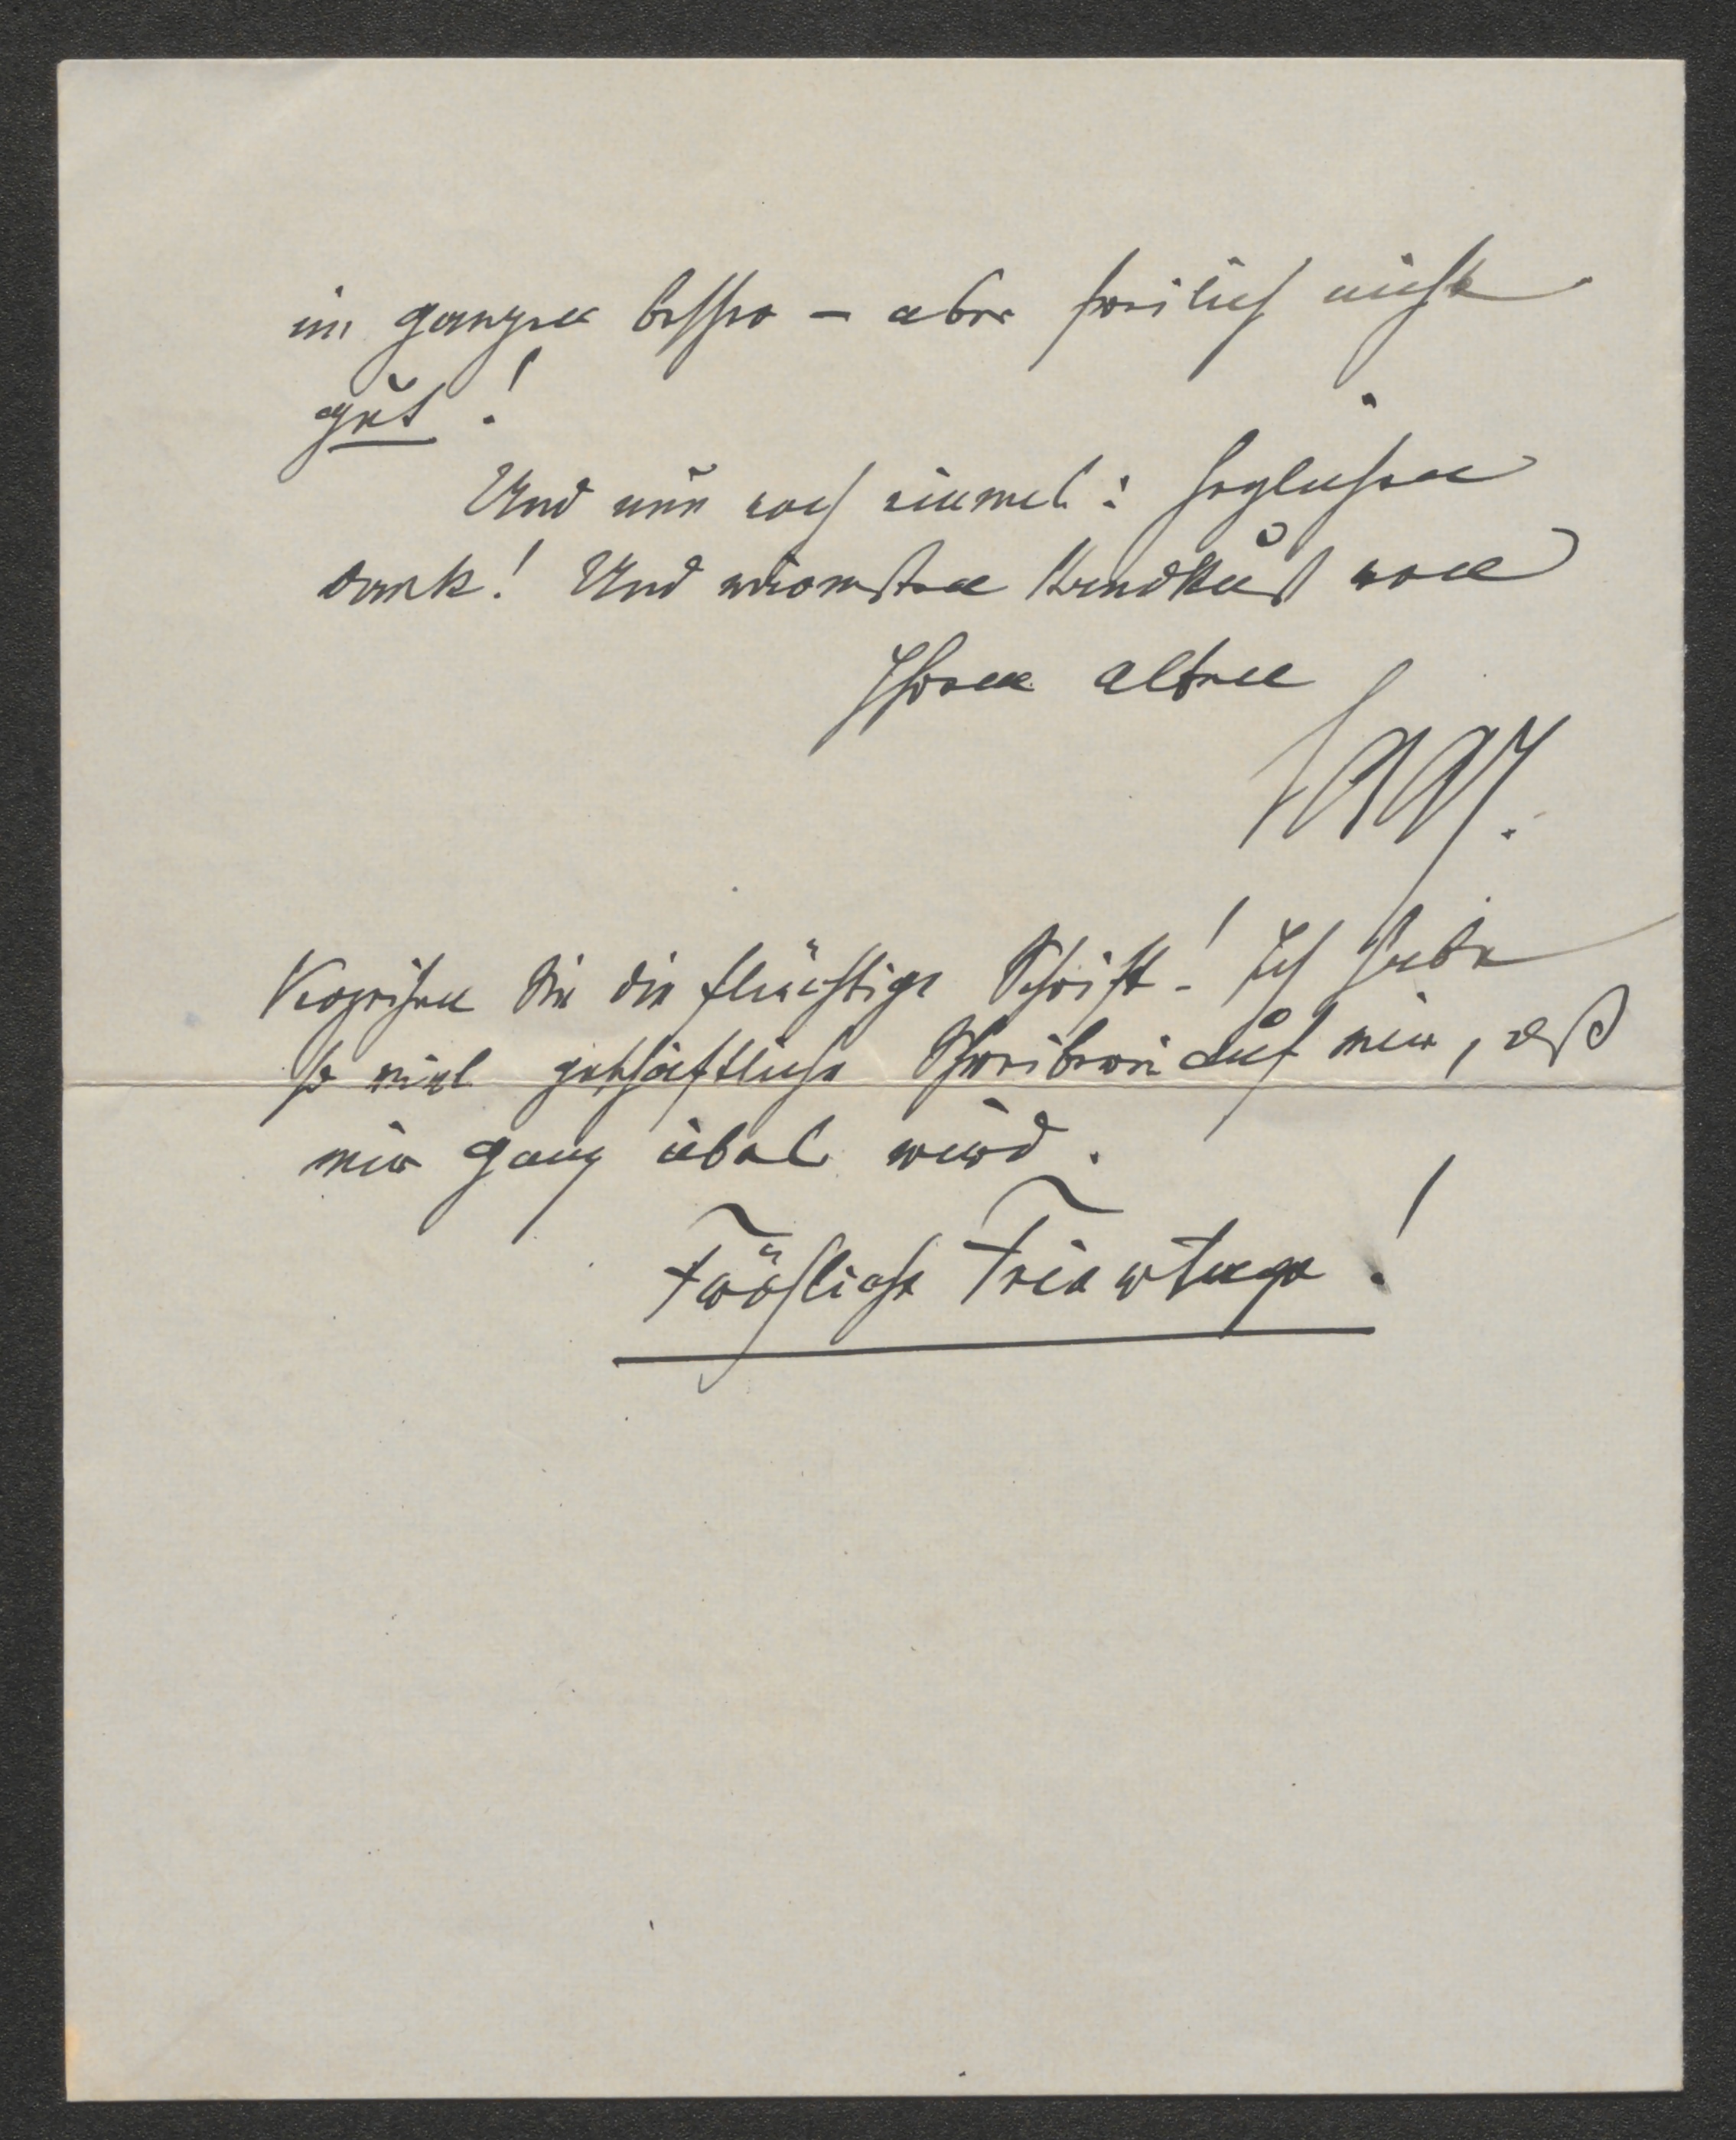 im ganzen besser – aber freilich nicht
gut!
Und nun noch einmal: herzlichen
Dank! Und wärmsten Handkuß von
Ihrem alten
Verzeihen Sie die flüchtige Schrift! Ich habe
so viel geschäftliche Schreiberei auf mir, daß
mir ganz übel wird.
Fröhliche Feiertage!